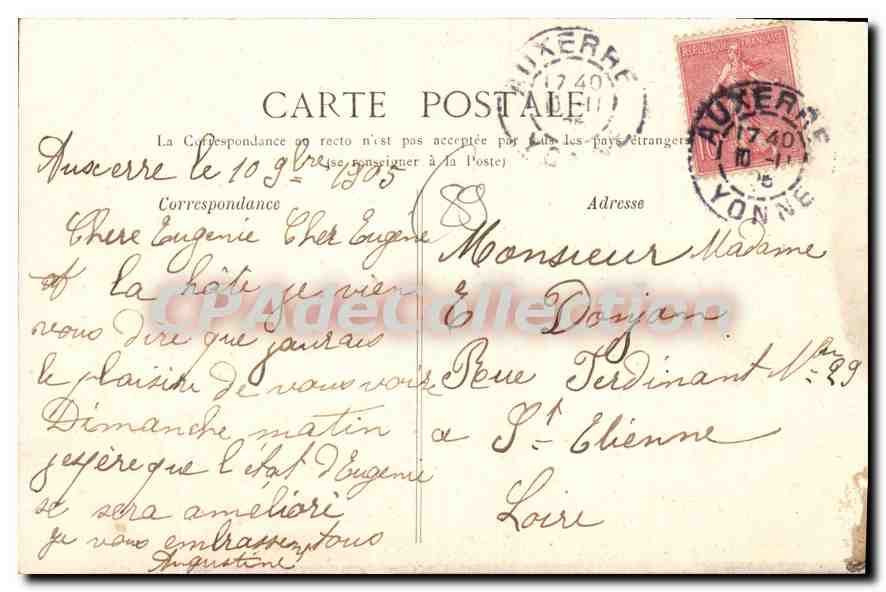 CARTE POSTALE
La Correspondance au recto n'est pas acceptée par tous les pays étrangers
(se renseigner à la Poste)
Auxerre le 10 9bre 1905
Correspondance
Chere Eugenie Cher Eugene
a la hâte je vien
vous dire que jaurais
le plaisir de vous voir
Dimanche matin
jespère que l'état d'Eugenie
se sera amélioré
je vous embrasse tous
Augustine
89
Adresse
Monsieur Madame
E Donjan
Rue Ferdinant No 29
a St Etienne
Loire
REPUBLIQUE FRANÇAISE
10
AUXERRE
17 40
10 -11
05
YONNE
AUXERRE
17 40
10 -11
05
YONNE
CPAdeCollection